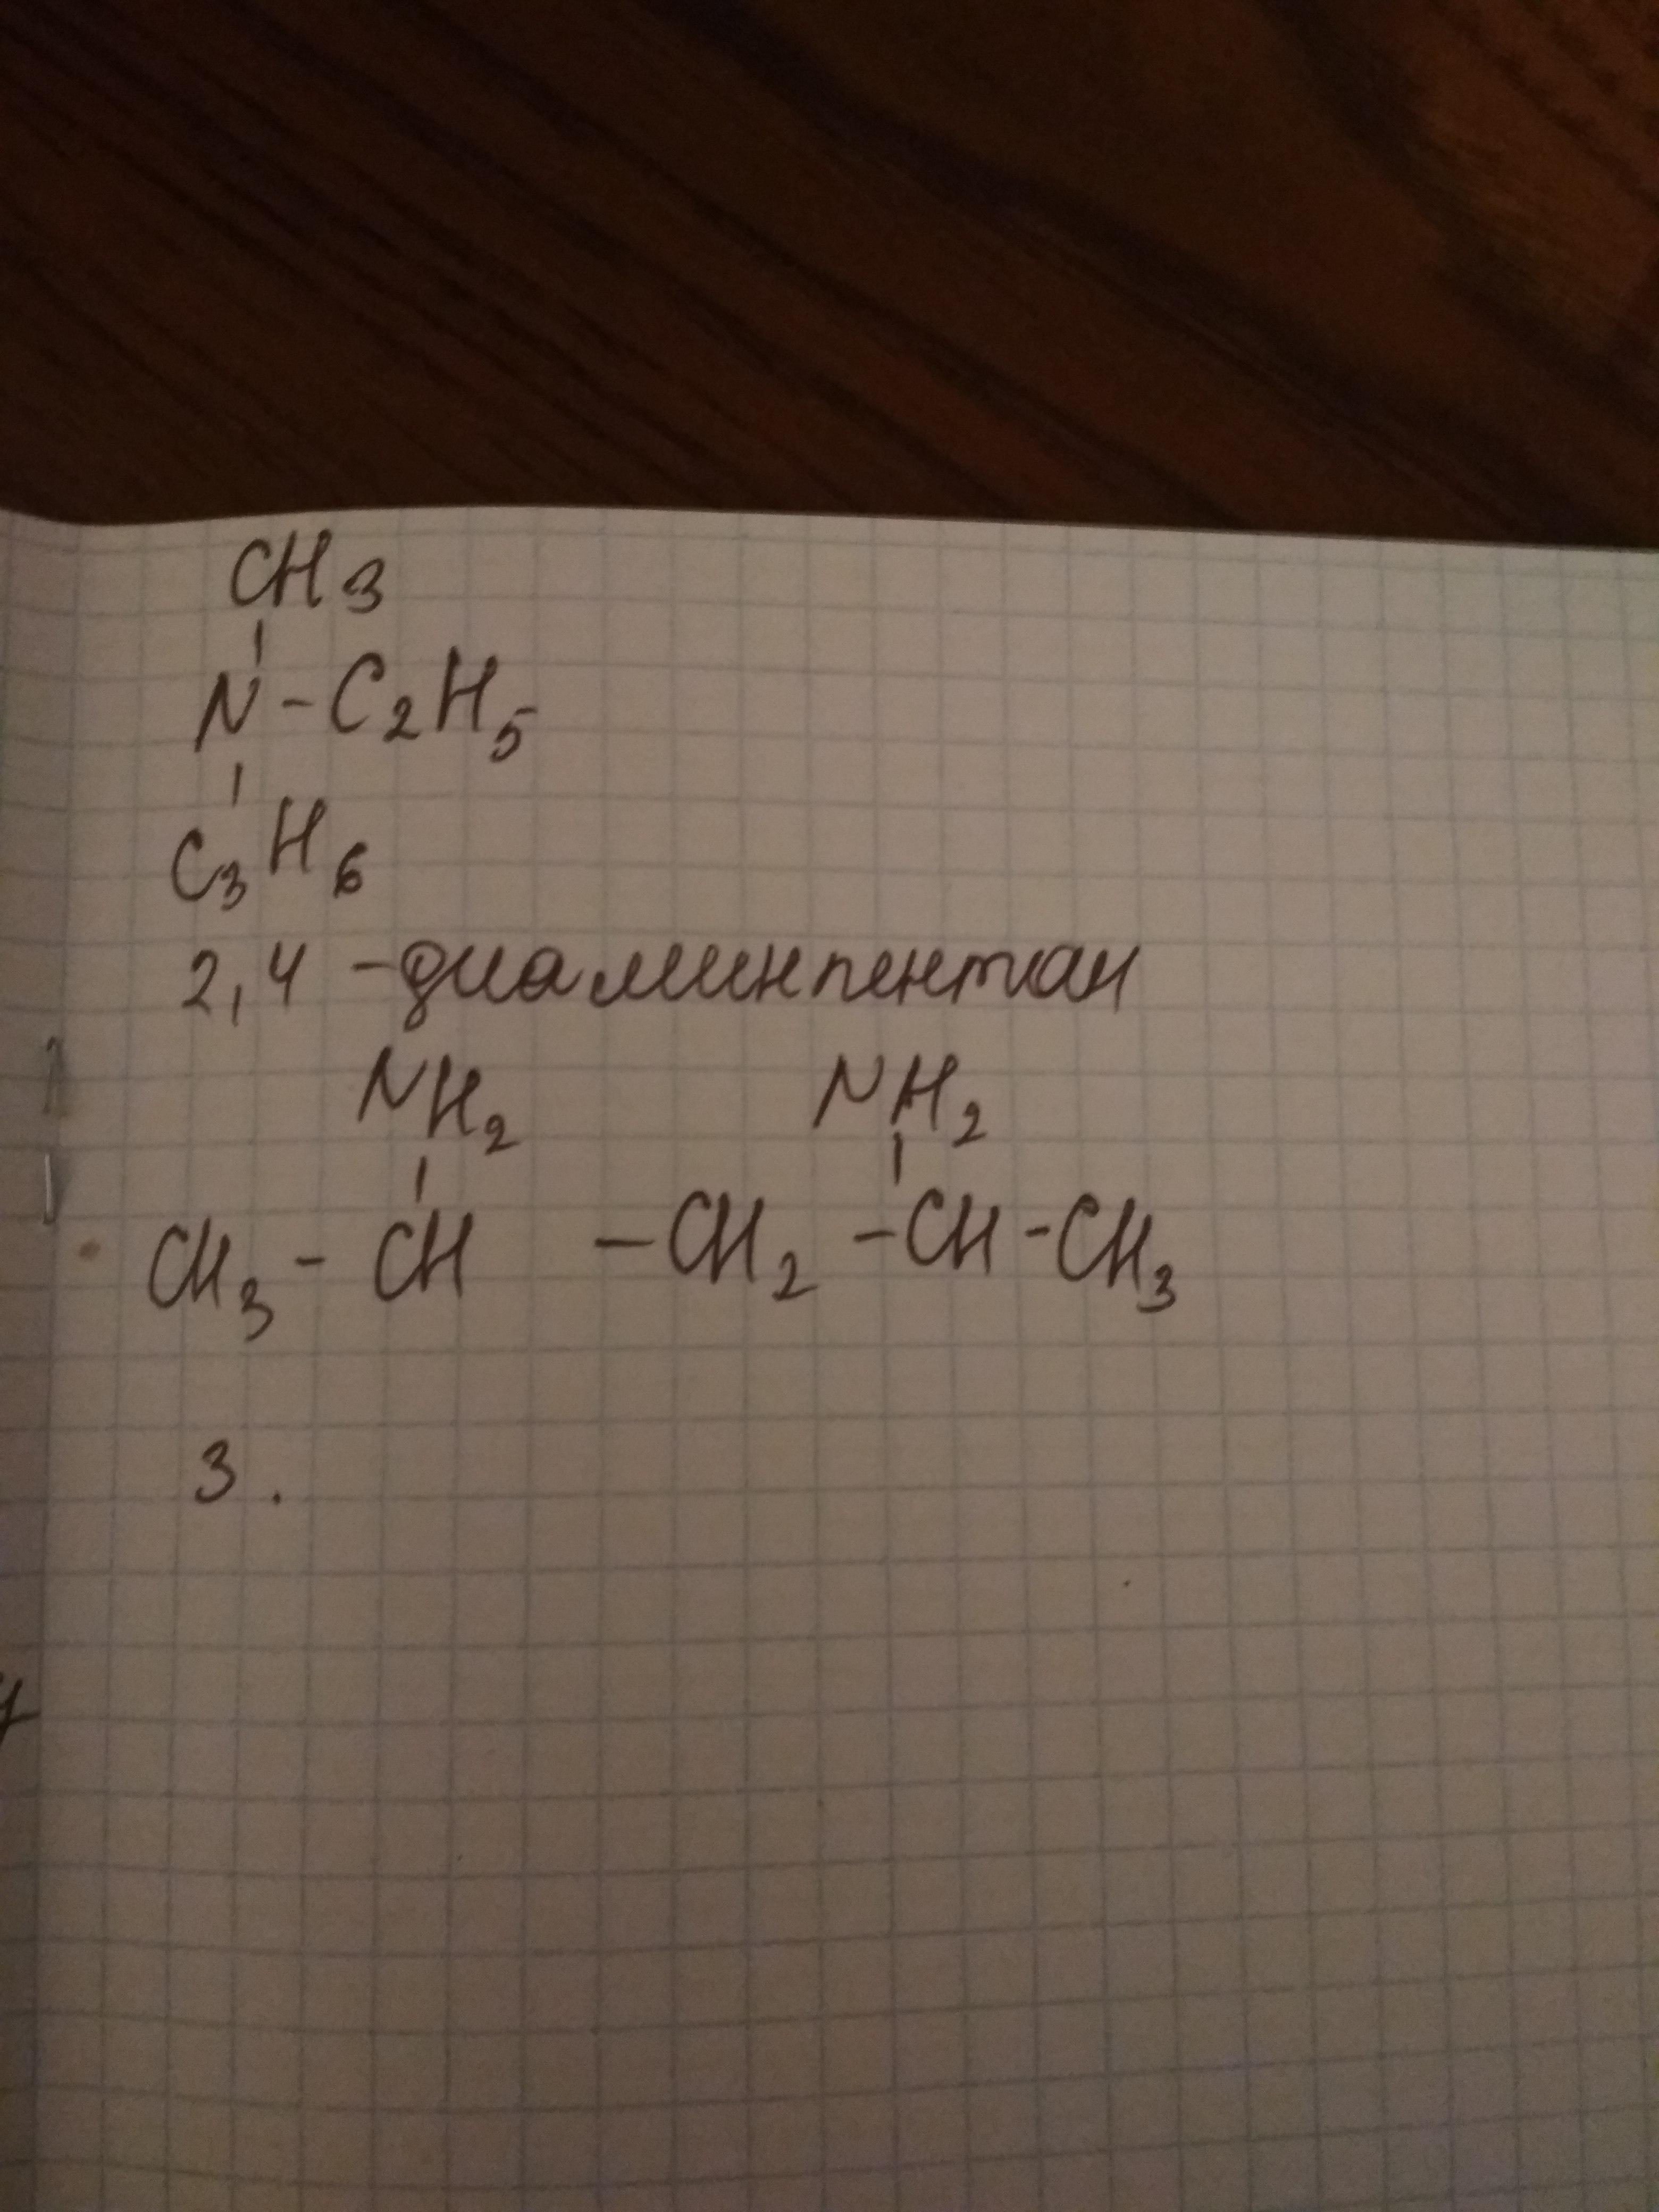 CH3
N - C2H5
C3H6
2,4 - диаминпентан
NH2 NH2
CH3 - CH - CH2 - CH - CH3
3.